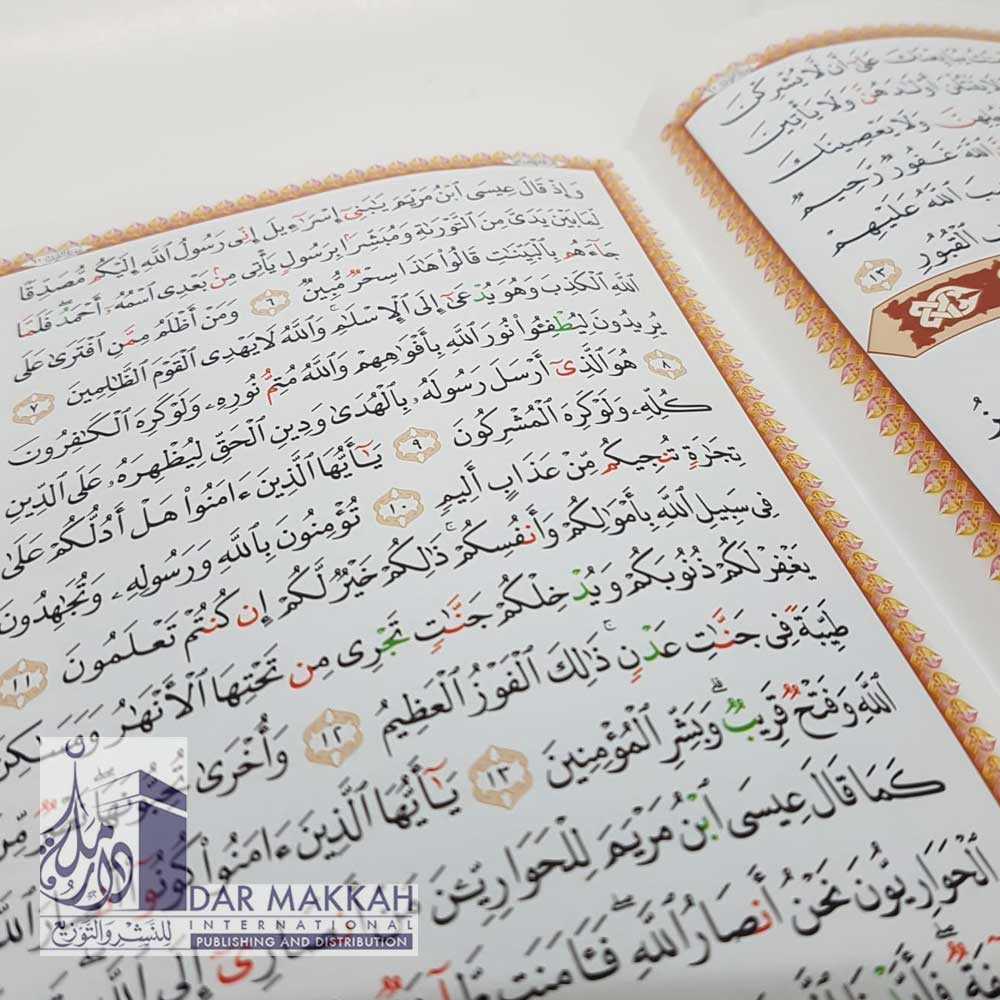 عَلَىٰٓ أَن لَّا يُشْرِكْنَ
أَوْلَـٰدَهُنَّ وَلَا يَأْتِينَ
وَلَا يَعْصِينَكَ
ٱللَّهَ غَفُورٌ رَّحِيمٌ
ٱللَّهُ عَلَيْهِمْ
ٱلْقُبُورِ ١٣
وَإِذْ قَالَ عِيسَى ٱبْنُ مَرْيَمَ يَـٰبَنِىٓ إِسْرَٰٓءِيلَ إِنِّى رَسُولُ ٱللَّهِ إِلَيْكُم مُّصَدِّقًا
لِّمَا بَيْنَ يَدَىَّ مِنَ ٱلتَّوْرَىٰةِ وَمُبَشِّرًۢا بِرَسُولٍ يَأْتِى مِنۢ بَعْدِى ٱسْمُهُۥٓ أَحْمَدُ ۖ فَلَمَّا
جَآءَهُم بِٱلْبَيِّنَـٰتِ قَالُوا۟ هَـٰذَا سِحْرٌ مُّبِينٌ ٦ وَمَنْ أَظْلَمُ مِمَّنِ ٱفْتَرَىٰ عَلَى
ٱللَّهِ ٱلْكَذِبَ وَهُوَ يُدْعَىٰٓ إِلَى ٱلْإِسْلَـٰمِ ۚ وَٱللَّهُ لَا يَهْدِى ٱلْقَوْمَ ٱلظَّـٰلِمِينَ ٧
يُرِيدُونَ لِيُطْفِـُٔوا۟ نُورَ ٱللَّهِ بِأَفْوَٰهِهِمْ وَٱللَّهُ مُتِمُّ نُورِهِۦ وَلَوْ كَرِهَ ٱلْكَـٰفِرُونَ
٨ هُوَ ٱلَّذِىٓ أَرْسَلَ رَسُولَهُۥ بِٱلْهُدَىٰ وَدِينِ ٱلْحَقِّ لِيُظْهِرَهُۥ عَلَى ٱلدِّينِ
كُلِّهِۦ وَلَوْ كَرِهَ ٱلْمُشْرِكُونَ ٩ يَـٰٓأَيُّهَا ٱلَّذِينَ ءَامَنُوا۟ هَلْ أَدُلُّكُمْ عَلَىٰ
تِجَـٰرَةٍ تُنجِيكُم مِّنْ عَذَابٍ أَلِيمٍ ١٠ تُؤْمِنُونَ بِٱللَّهِ وَرَسُولِهِۦ وَتُجَـٰهِدُونَ
فِى سَبِيلِ ٱللَّهِ بِأَمْوَٰلِكُمْ وَأَنفُسِكُمْ ۚ ذَٰلِكُمْ خَيْرٌ لَّكُمْ إِن كُنتُمْ تَعْلَمُونَ ١١
يَغْفِرْ لَكُمْ ذُنُوبَكُمْ وَيُدْخِلْكُمْ جَنَّـٰتٍ تَجْرِى مِن تَحْتِهَا ٱلْأَنْهَـٰرُ وَمَسَـٰكِنَ
طَيِّبَةً فِى جَنَّـٰتِ عَدْنٍ ۚ ذَٰلِكَ ٱلْفَوْزُ ٱلْعَظِيمُ ١٢ وَأُخْرَىٰ تُحِبُّونَهَا ۖ نَصْرٌ مِّنَ
ٱللَّهِ وَفَتْحٌ قَرِيبٌ ۗ وَبَشِّرِ ٱلْمُؤْمِنِينَ ١٣ يَـٰٓأَيُّهَا ٱلَّذِينَ ءَامَنُوا۟ كُونُوٓا۟
كَمَا قَالَ عِيسَى ٱبْنُ مَرْيَمَ لِلْحَوَارِيِّـۧنَ مَنْ أَنصَارِىٓ إِلَى
ٱلْحَوَارِيُّونَ نَحْنُ أَنصَارُ ٱللَّهِ ۖ فَـَٔامَنَت
دار مكة
للنشر والتوزيع
DAR MAKKAH
INTERNATIONAL
PUBLISHING AND DISTRIBUTION